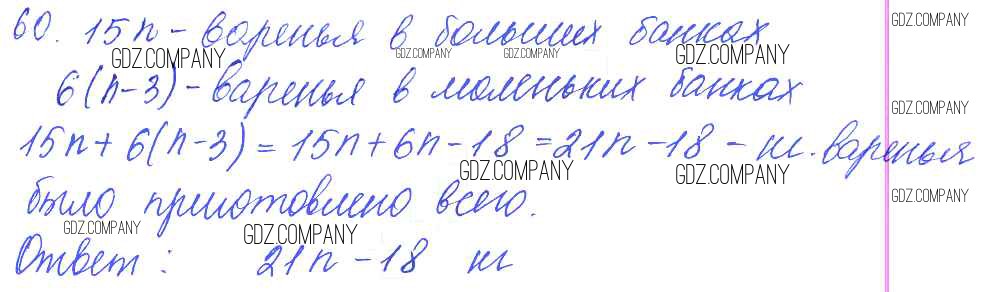 60. 15n - варенья в больших банках
6(n-3) - варенья в маленьких банках
15n + 6(n-3) = 15n + 6n - 18 = 21n - 18 - кг. варенья
было приготовлено всего.
Ответ: 21n - 18 кг
GDZ.COMPANY
GDZ.COMPANY
GDZ.COMPANY
GDZ.COMPANY
GDZ.COMPANY
GDZ.COMPANY
GDZ.COMPANY
GDZ.COMPANY
GDZ.COMPANY
GDZ.COMPANY
GDZ.COMPANY
GDZ.COMPANY